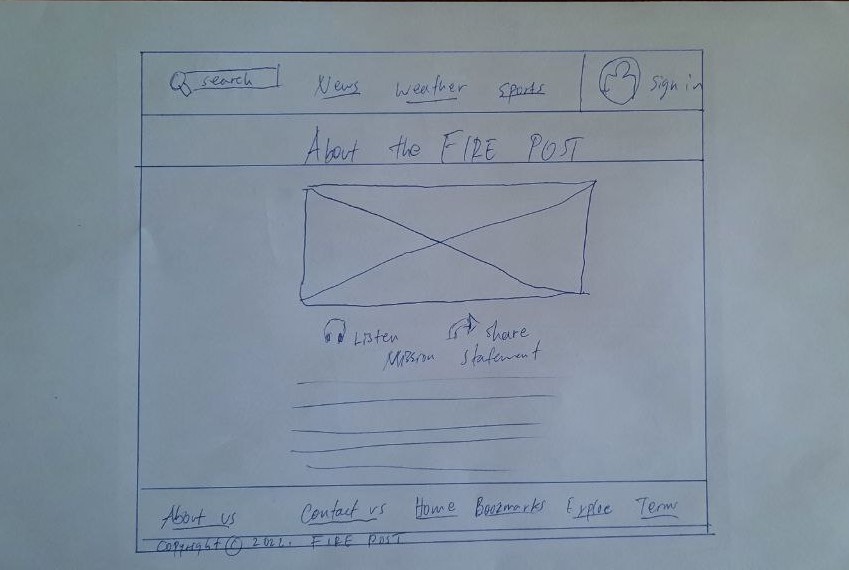 search News Weather Sports Sign in
About the FIRE POST
Listen share
Mission Statement
About us Contact us Home Bookmarks Terms
Copyright © FIRE POST